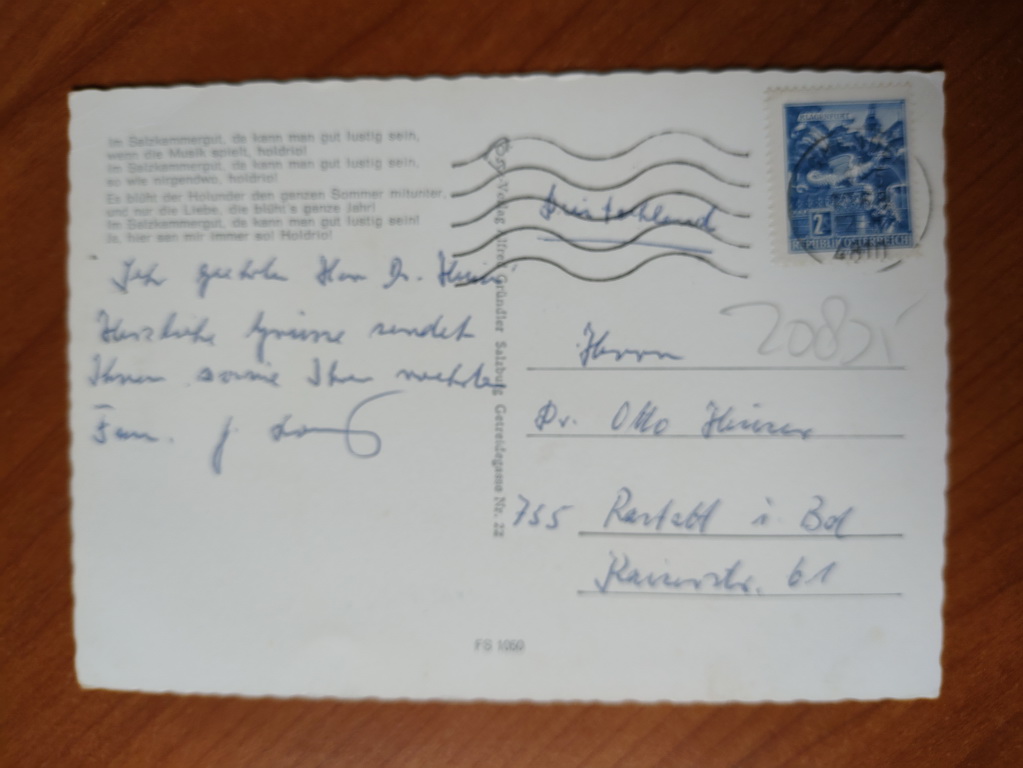 Im Salzkammergut, da kann man gut lustig sein,
wenn die Musik spielt, holdrio!
Im Salzkammergut, da kann man gut lustig sein,
so wie nirgendwo, holdrio!
Es blüht der Holunder den ganzen Sommer mitunter,
und nur die Liebe, die blüht's ganze Jahr!
Im Salzkammergut, da kann man gut lustig sein!
Ja, hier san mir immer so! Holdrio!
Sehr geehrter Herr Dr.
Herzliche Grüsse sendet
Ihnen sowie Ihrer
Fam. J.
Verlag Alfred Gründler Salzburg Getreidegasse Nr. 22
Deutschland
KLAGENFURT
2
REPUBLIK ÖSTERREICH
Herrn
Dr. Otto
755 Rastatt i. Bd
Kaiserstr. 61
FS 1060